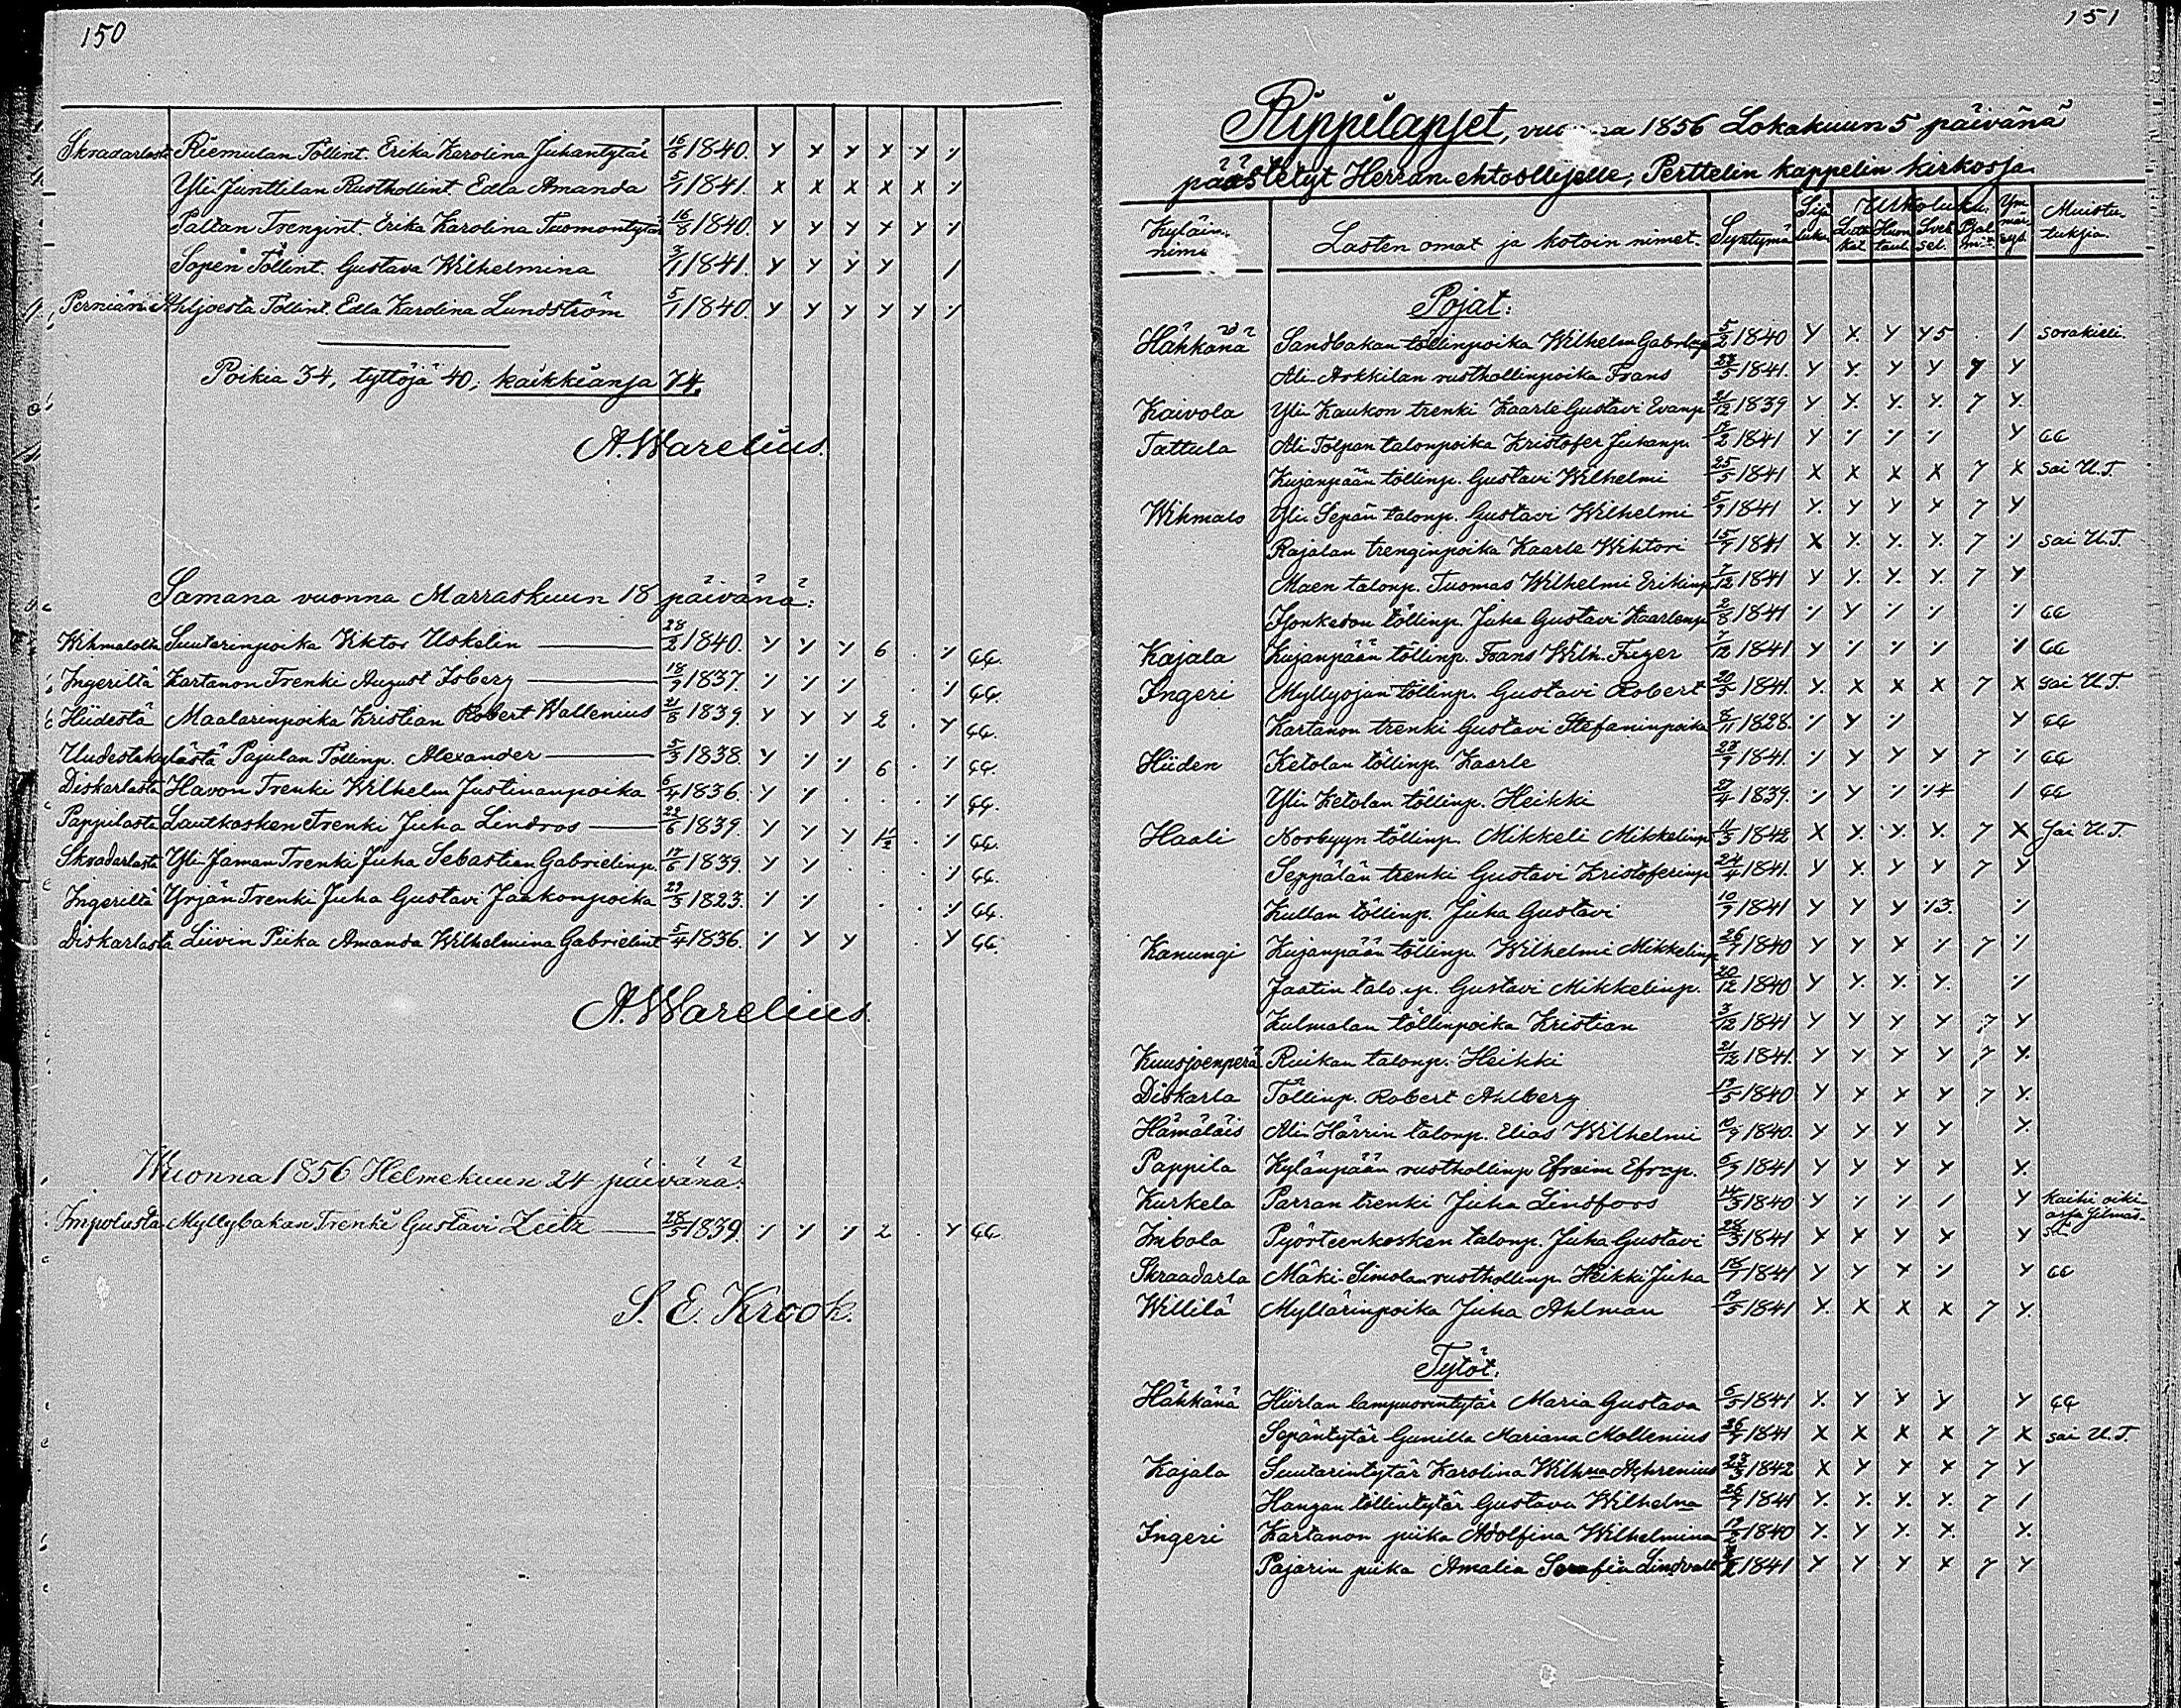 150
Skradarlasta Riemulan Töllint. Erika Karolina Juhantytär 16/6 1840. Y Y Y Y Y ⁒
Yli-Junttilan Rusthollint Edla Amanda 5/1 1841. X X X X X ⁒
Paltan Trengint. Erika Karolina Tuomontytär 16/8 1840. Y Y Y Y Y ⁒
Sopen Töllint. Gustava Wilhelmina 3/1 1841. Y Y Y Y /
Perniän Töllint. Edla Karolina Lundström 5/1 1840. Y Y Y Y Y ⁒
Poikia 34, tyttöjä 40; kaikkiansa 74.
A. Warelius.
Samana vuonna Marraskuun 18 päivänä:
Wihmalolta Suutarinpoika Viktor Uskelin 28/2 1840. Y Y Y 6 . ⁒ GG.
Ingeriltä Kartanon Trenki August Isberg 18/9 1837. ⁒ ⁒ ⁒ . ⁒ GG.
Hiidestä Maalarinpoika Kristian Robert Wallenius 21/8 1839. Y Y Y 2 . Y GG.
Uudestakylästä Pajulan Töllinp. Alexander 5/3 1838. Y ⁒ ⁒ 6 . ⁒ GG.
Diskarlasta Havon Trenki Wilhelm Justinanpoika 6/4 1836. Y ⁒ . . . ⁒ GG.
Pappilasta Lautkosken Trenki Juha Lindros 22/6 1839. Y Y Y 1½ . ⁒ GG.
Skradarlasta Yli-Jaman Trenki Juha Sebastian Gabrielinp. 17/6 1839. Y Y . . . ⁒ GG.
Ingeriltä Yrjän Trenki Juha Gustavi Jaakonpoika 29/3 1823. ⁒ ⁒ . . ⁒ GG.
Diskarlasta Liivin Piika Amanda Wilhelmina Gabrielint 5/4 1836. ⁒ Y Y . Y GG.
A. Warelius.
Wuonna 1856 Helmekuun 24 päivänä:
Impolusta Myllybakan Trenki Gustavi Zeitz 28/5 1839. ⁒ ⁒ ⁒ 2 . Y GG.
S. E. Krook.
151
Rippilapset, vuonna 1856 Lokakuun 5 päivänä
päästetyt Herran ehtoollijelle, Perttelin kappelin kirkossa.
Kyläin nimi Lasten omat ja kotoin nimet. Syntymä Sisäluku Ulkoluku. Muistutuksia.
Pojat:
Hähkänä Sandbakan töllinpoika Wilhelm Gabrlinp 5/2 1840 Y X. Y Y5 . / sorakieli.
Ali-Arkkilan rusthollinpoika Frans 23/5 1841. Y Y. Y Y 7 Y
Kaivola Yli-Kaukon trenki Kaarle Gustavi Evanp. 21/12 1839 Y X. Y. X. 7 Y.
Tattula Ali-Tolpan talonpoika Kristofer Juhanp. 12/2 1841 Y ⁒ ⁒ ⁒ Y GG
Kujanpään töllinp. Gustavi Wilhelmi 25/5 1841 X X X X 7 X sai U.T.
Wihmalo Yli-Sepän talonp. Gustavi Wilhelmi 5/9 1841 Y. Y Y Y 7 Y
Rajalan trenginpoika Kaarle Wiktori 15/9 1841 X Y. Y. Y. 7 ⁒ sai U.T.
Maen talonp. Tuomas Wilhelmi Erikinp. 7/12 1841 Y Y. Y. Y. 7 Y
Isonkedon töllinp. Juha Gustavi Kaarlenp. 2/8 1841 ⁒ Y ⁒ ⁒ ⁒ GG
Kajala Kujanpään töllinp. Frans Wilh. Friger 7/12 1841 Y ⁒ ⁒ ⁒ ⁒ GG
Ingeri Myllyojan töllinp. Gustavi Robert 20/5 1841. Y. X X X 7 X sai U.T.
Kartanon trenki Gustavi Stefaninpoika 8/11 1828. ⁒ Y ⁒ Y GG
Hiiden Ketolan töllinp. Kaarle 28/9 1841. ⁒ Y Y Y 7 ⁒ GG
Yli-Ketolan töllinp. Heikki 27/4 1839. ⁒ Y ⁒ ⁒4 / GG
Haali Norbyyn töllinp. Mikkeli Mikkelinp. 11/3 1842 X Y. Y. Y. 7 X Sai U.T.
Seppälän trenki Gustavi Kristoferinp. 24/4 1841. Y X. Y Y 7 Y.
Kullan töllinp. Juha Gustavi 10/9 1841 Y Y Y ⁒3. ⁒
Kanungi Kujanpään töllinp. Wilhelmi Mikkelinp. 26/9 1840 Y Y X ⁒ 7 ⁒
Jaatin Gustavi Mikkelinp. 20/12 1840 Y Y. Y. Y. ⁒
Kulmalan töllinpoika Kristian 3/12 1841 Y Y Y Y 7 Y
Kuusjoenperä Ruikan talonp. Heikki 21/12 1841. Y Y Y Y 7 Y.
Diskarla Töllinp. Robert Ahlberg 13/5 1840 Y X Y Y 7 Y.
Hämäläis Ali-Härrin talonp. Elias Wilhelmi 10/9 1840. Y Y Y Y Y.
Pappila Kylänpään rusthollinp Efraim Efr.np. 6/9 1841 Y Y Y Y Y.
Kurkela Parran trenki Juha Lindfoos 14/3 1840 Y ⁒ ⁒ / Y
Imbola Pyörteenkosken talonp. Juha Gustavi 28/3 1841 Y X Y Y Y
Skraadarla Mäki-Simolan rusthollinp. Heikki Juha 18/7 1841 Y Y Y ⁒ Y GG
Willilä Myllärinpoika Juha Ahlman 19/5 1841 Y. X X X 7 Y.
Tytöt.
Hähkänä Hiirlan lampuorintytär Maria Gustava 6/5 1841 Y. Y Y Y Y GG
Sepäntytär Gunilla Mariana Mollenius 26/9 1841 X X X X 7 X sai U.T.
Kajala Suutarintytär Karolina Wilhna 23/3 1842 X Y Y Y 7 Y
Hangan töllintytär Gustava Wilhelna 26/7 1841 Y. Y. Y. Y. 7 /
Ingeri Kartanon piika Adolfina Wilhelmina 19/5 1840 Y. Y Y. Y. Y.
Pajarin piika Amalia Serafia Lindvall 1841 Y Y Y X 7 Y